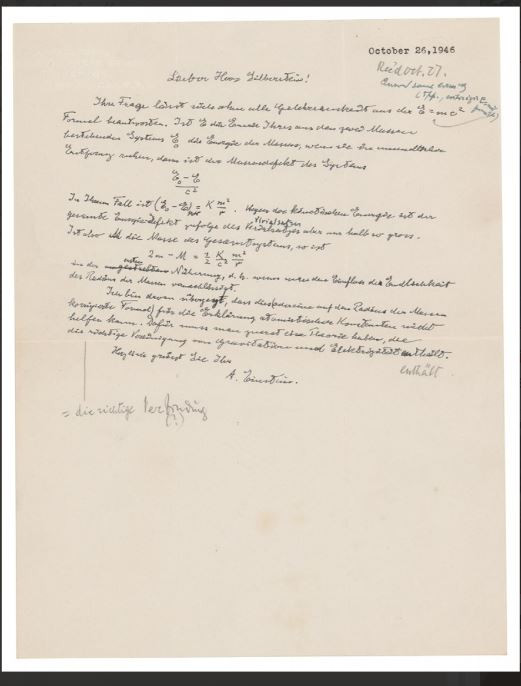 October 26, 1946
Rec'd Oct. 27.
Lieber Herr Silberstein!
Ihre Frage lässt sich ohne alle Gelehrsamkeit aus der E = mc²
Formel beantworten. Ist E die Energie Ihres aus den zwei Massen
bestehenden Systems E₀ die Energie der Massen, wenn sie in unendlicher
Entfernung ruhen, dann ist der Massendefekt des Systems
E₀ - E
c²
In Ihrem Fall ist (E₀ - E) = K m²/r. Wegen der kinetischen Energie ist der
Virialsatzes
gesamte Energiedefekt zufolge des aber nur halb so gross.
Ist also M die Masse des Gesamtsystems, so ist
2m - M = 1/2 K/c² m²/r
in der ersten Näherung, d. h. wenn man den Einfluss der Endlichkeit
des Radius der Massen vernachlässigt.
Ich bin davon überzeugt, dass diese auf den Radius der Massen
korrigierte Formel für die Erklärung atomistischer Konstanten nicht
helfen kann. Dafür muss man zuerst eine Theorie haben, die
die richtige Vereinigung von Gravitation und Elektrizität enthält.
enthält
Herzlich grüsst Sie Ihr
A. Einstein.
= die richtige Verbindung
(?)